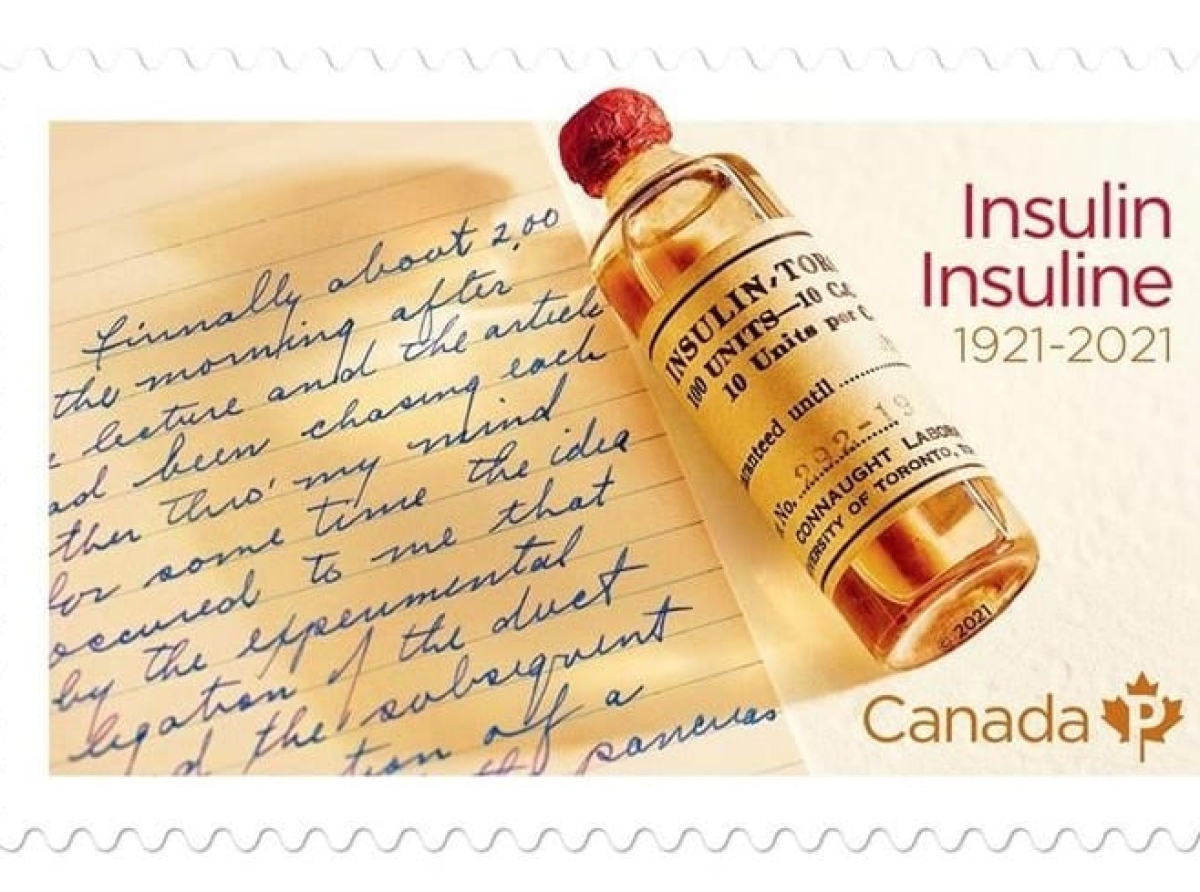 Finnally about 2,00
the morning after
lecture and the article
ad been chasing each
ther thro' my mind
for some time the idea
occured to me that
by the experimental
legation of the duct
d the subsequent
tion of a
pancreas
INSULIN, TOR
100 UNITS—10 C.
10 Units per C
ranteed until
No. 292-19
CONNAUGHT LABOR
ERSITY OF TORONTO, T
© 2021
Insulin
Insuline
1921-2021
Canada P